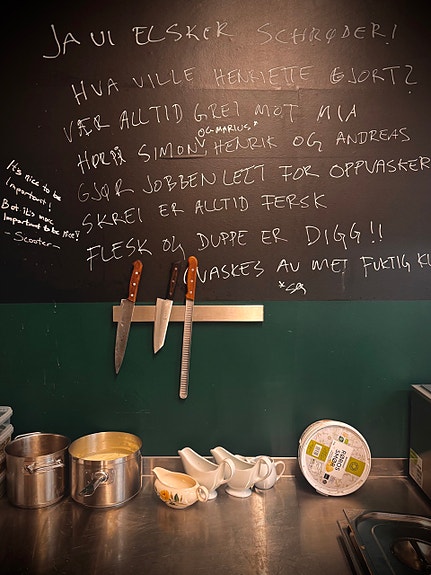 JA VI ELSKER SCHRØDER!
HVA VILLE HENRIETTE GJORT?
VÆR ALLTID GREI MOT MIA
OG MARIUS*
HØR PÅ SIMON, HENRIK OG ANDREAS
GJØR JOBBEN LETT FOR OPPVASKER
SKREI ER ALLTID FERSK
FLESK OG DUPPE ER DIGG!!
VASKES AV MET FUKTIG KL
It's nice to be
important!
But it's more
important to be nice!
- Scooter -
RØROS
SMØR